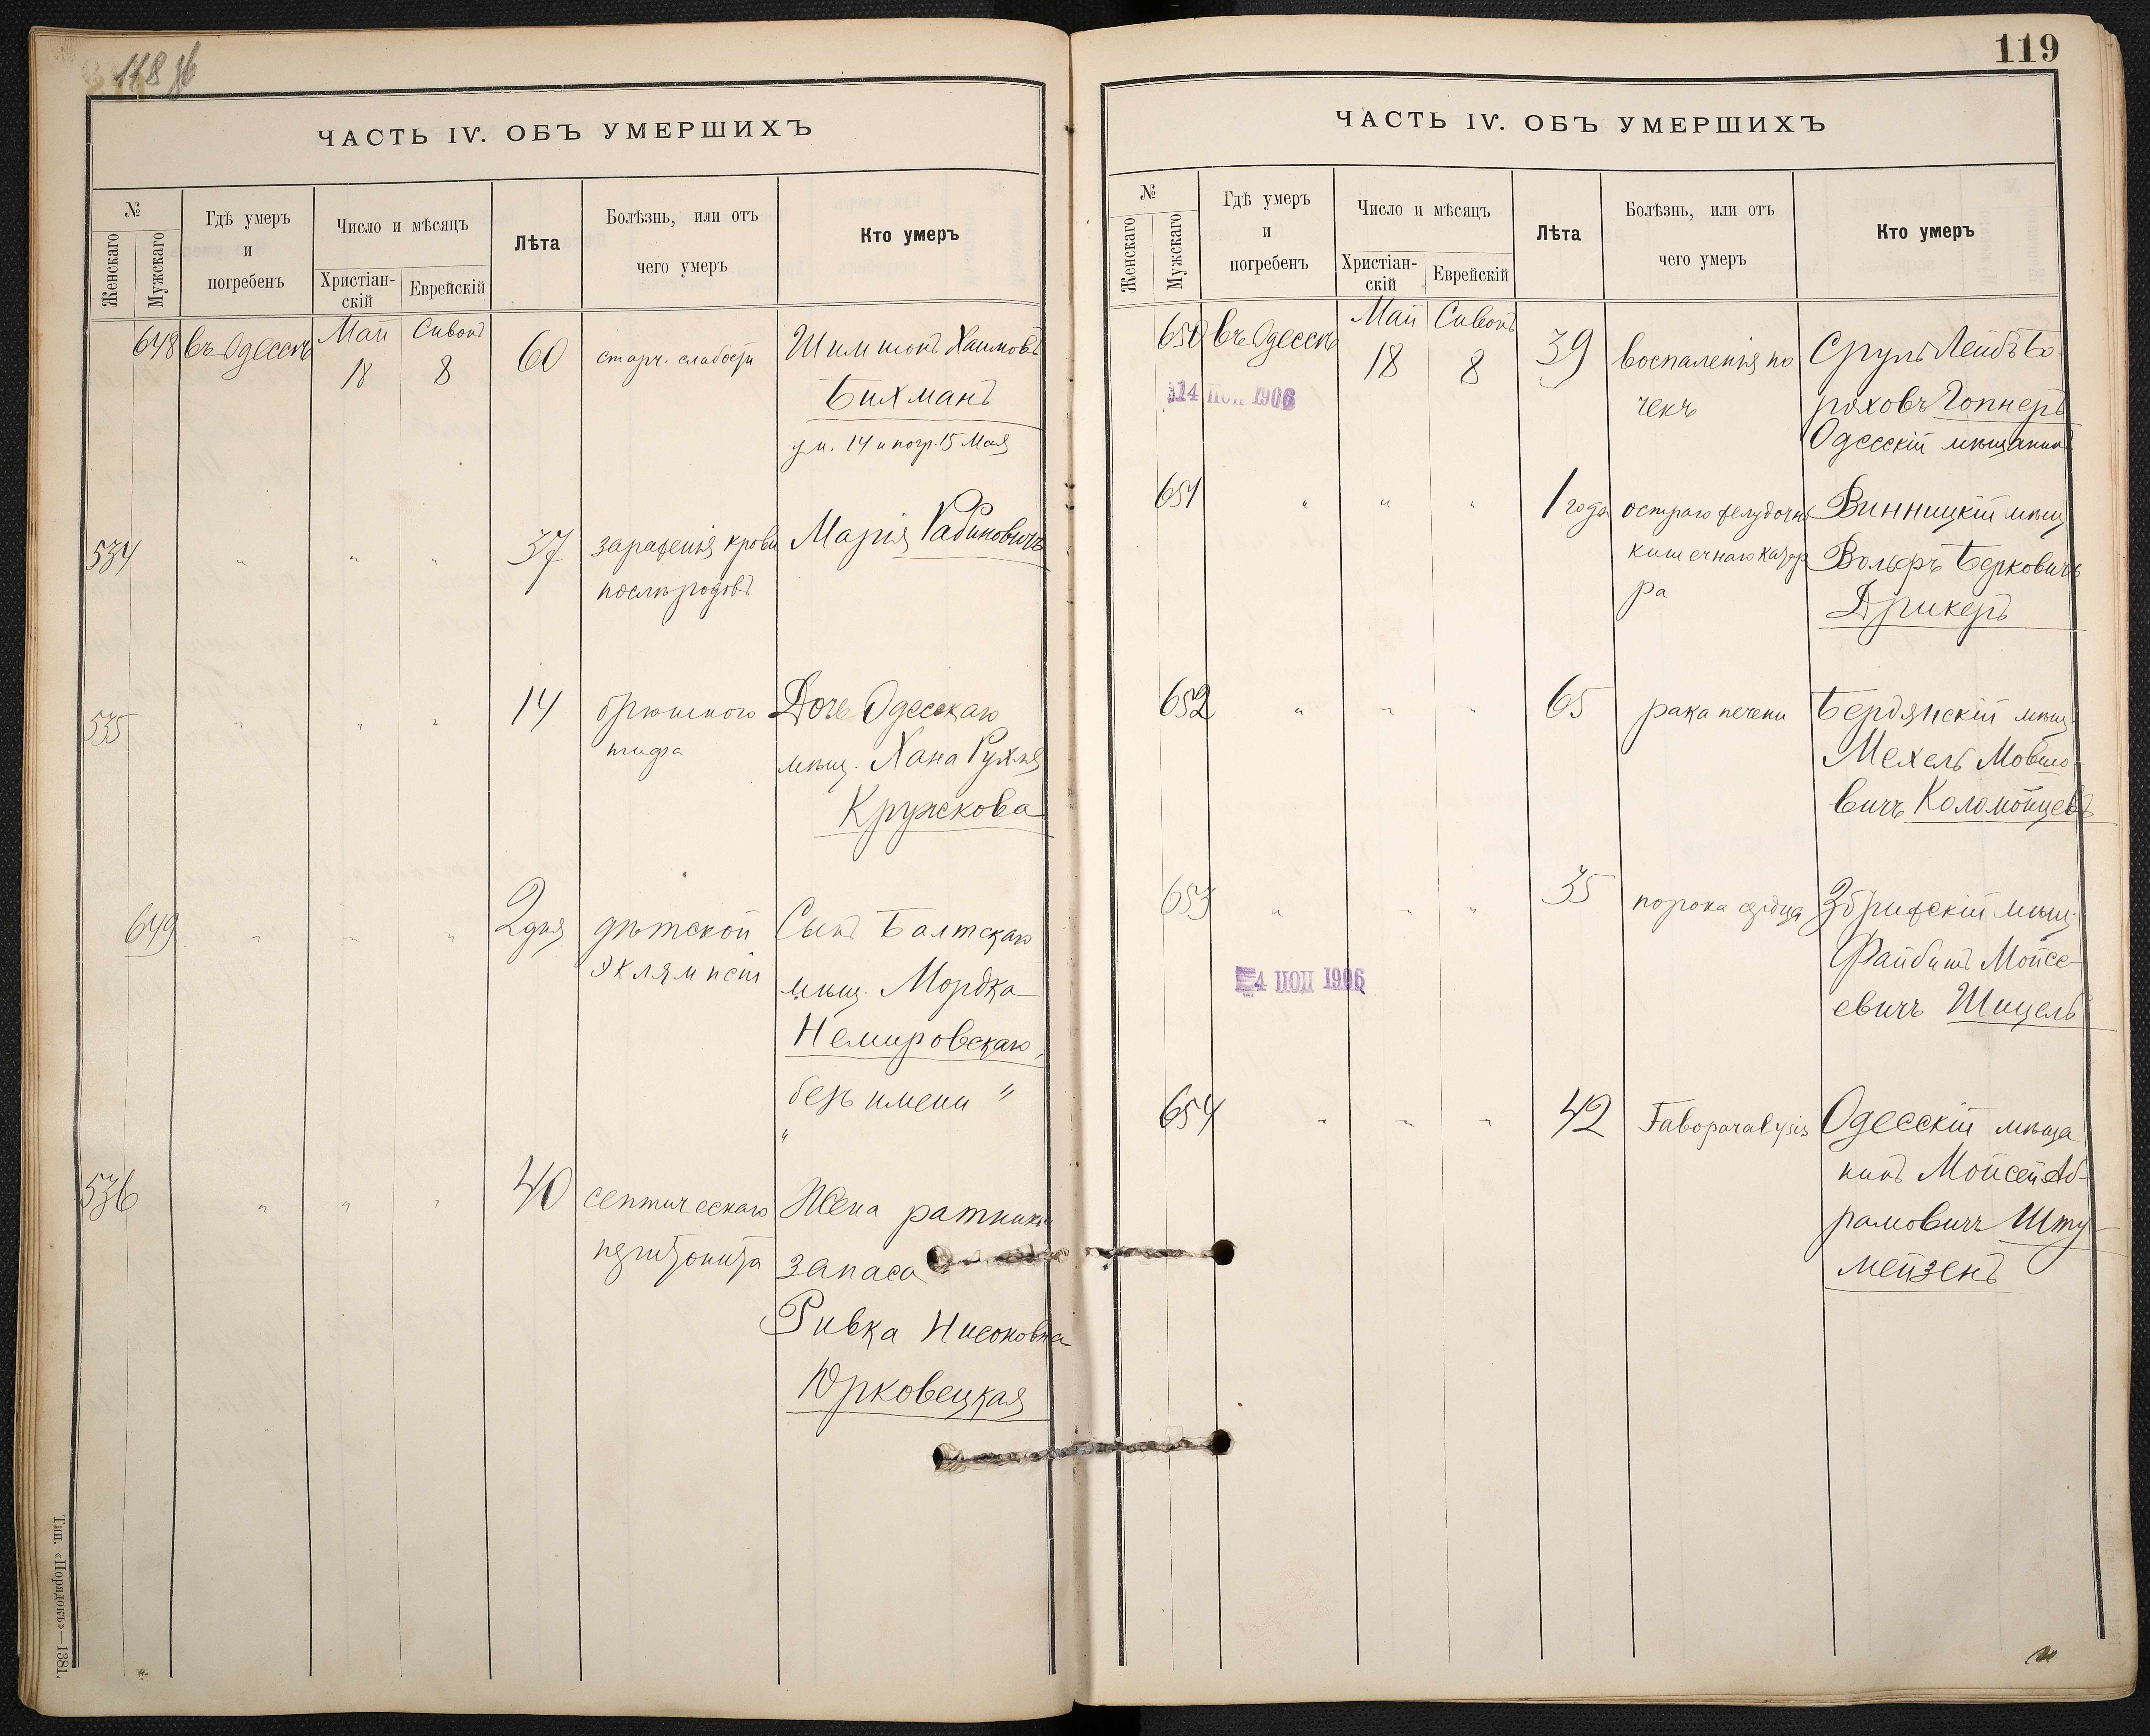 118 об
ЧАСТЬ IV. ОБЪ УМЕРШИХЪ
№
Женскаго
Мужскаго
Гдѣ умеръ
и
погребенъ
Число и мѣсяцъ
Христіан-
скій
Еврейскій
Лѣта
Болѣзнь, или отъ
чего умеръ
Кто умеръ
648 въ Одессѣ Май 18 Сивонъ 8 60 старч. слабости Шимшонъ Хаимовъ
Бихманъ
ум. 14 и погр. 15 Мая
534 " " " 37 зараженія крови Марія Рабиновичъ
послѣ родовъ
535 " " " 14 брюшного Дочь Одесскаго
тифа мѣщ. Хана Рухля
Кружкова
649 " " " 2 дня дѣтской Сынъ Балтскаго
эклямпсіи мѣщ. Мордка
Немировскаго,
безъ имени "
"
536 " " " 40 септическаго Жена ратника
перитонита запаса
Ривка Нисоновна
Юрковецкая
Тип. «Порядокъ»—1381.
119
ЧАСТЬ IV. ОБЪ УМЕРШИХЪ
№
Женскаго
Мужскаго
Гдѣ умеръ
и
погребенъ
Число и мѣсяцъ
Христіан-
скій
Еврейскій
Лѣта
Болѣзнь, или отъ
чего умеръ
Кто умеръ
650 въ Одессѣ Май 18 Сивонъ 8 39 воспаленія по Сруль Лейбъ Бо-
14 1906
чекъ роховъ Гопнеръ
Одесскій мѣщанинъ
651 " " " 1 года остраго желудочно Винницкій мѣщ
кишечнаго катар Вольфъ Берковичъ
ра Дрикеръ
652 " " " 65 рака печени Бердянскій мѣщ.
Мехель Мовшо-
вичъ Коломойцевъ
653 " " " 35 порока сердца Збрижскій мѣщ.
Файбишъ Мойсе-
4 1906
евичъ Шицель
654 " " " 42 Taboparalysis Одесскій мѣща
нинъ Мойсей Аб-
рамовичъ Шту-
мейзенъ